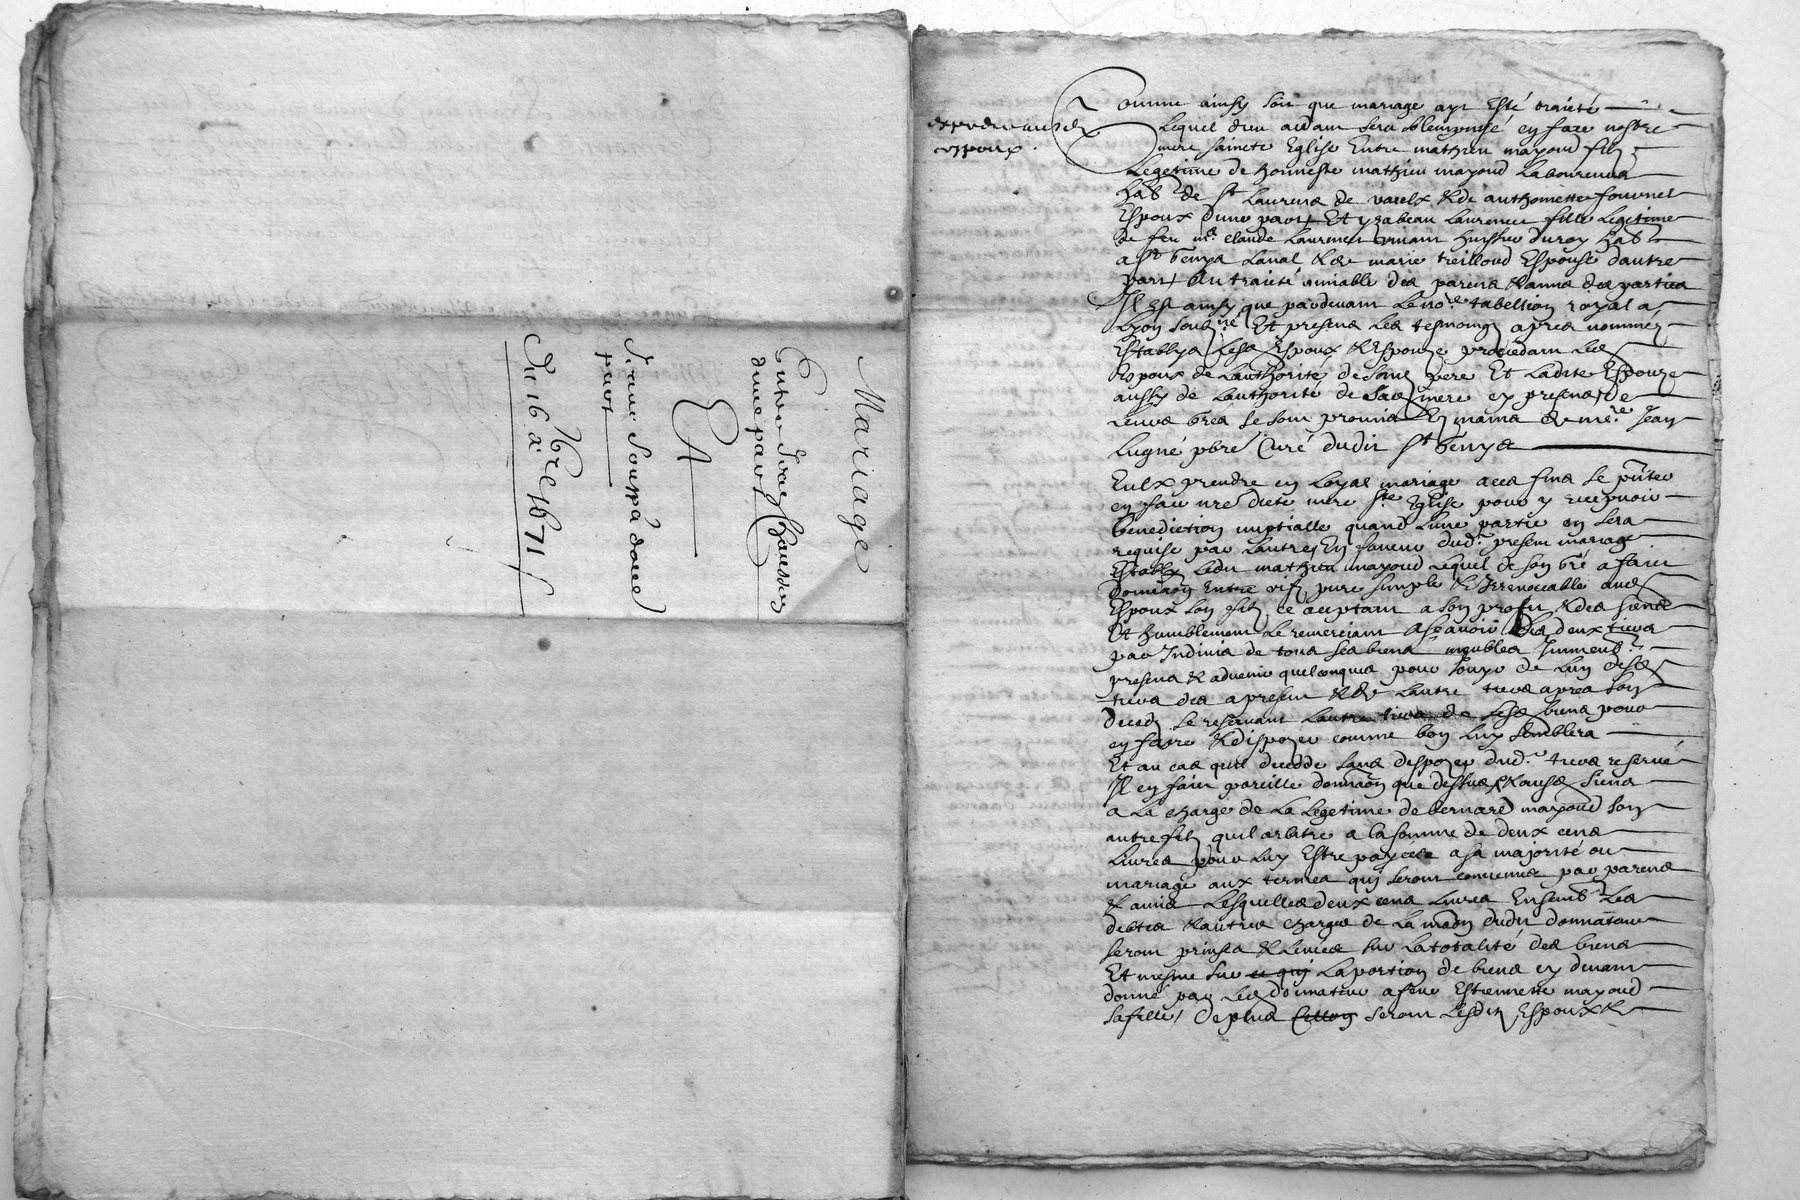 Mariage
Entre Jean Chaussen
d'une part
Et
Jeane Souppa d'autre
part
Du 16 à 7bre 1671
expedie aud
espoux.
Comme ainsy soit que mariage ayt Esté traicté
Lequel dieu aidant sera solempnisé en face nostre
mere saincte Eglise Entre mathieu mayoud filz
Legetime de honneste mathieu mayoud Laboureur
habt. de St Laurens de vaulx & de anthoinette fournel
Espoux d'une part, Et ysabeau Laurenson fille Legetime
de feu me. claude Laurenson vivant huissier du roy habt.
a St Genys Laval & de marie treilloud Espouse d'autre
part Au traicté amiable des parens & amis des parties
Il est ainsy que pardevant Le nore. tabellion royal a
Lyon soubzné Et presens Les tesmoings apres nommez
Establys Lesd. Espoux & Espouze procedant Led.
Espoux de L'authorité de sond. pere Et Ladite Espouze
aussy de L'authorité de Sad. mere en presence de
Leurs grés se sont promis En mains de mre. Jean
Lugné pbre Curé dudit St Genys
Eulx prendre en Loyal mariage a ces fins se pnter
en face nre dicte mere Ste. Eglise pour y recepvoir
benediction nuptialle quand L'une partie en sera
requise par L'autre, En faveur dudt. present mariage
Estably Ledit mathieu mayoud Lequel de son gré a faict
donnaon Entre vifz pure simple & Irrevocable aud.
Espoux son filz ce acceptant a son proffit & des siens
Et humblement Le remerciant Ascavoir des deux tiers
par Indivis de tous ses biens meubles Immeubles
presens & advenir quelconques pour Jouyr de L'un desd.
tiers des a present & de L'autre tiers apres son
decedz se reservant L'autre tiers de sesd. biens pour
en faire & dispozer comme bon luy semblera
Et au cas quil decedde sans dispozer dudt. tiers reservé
Il en faict pareille donnaon que dessus & aux siens
a La charge de La Legetime de bernard mayoud son
autre filz quil arbitre a la somme de deux cens
Livres pour Luy Estre payées a sa majorité ou
mariage aux termes qui seront convenus par parens
& amis Lesquelles deux cens Livres Ensemble Les
debtes & autres charges de La maon dudit donnateur
seront prinses & Levées sur La totalité des biens
Et mesme sur ce qui La portion de biens cy devant
donné par Led. donnateur a feue Estiennette mayoud
sa fille, De plus seront Lesditz Espoux &